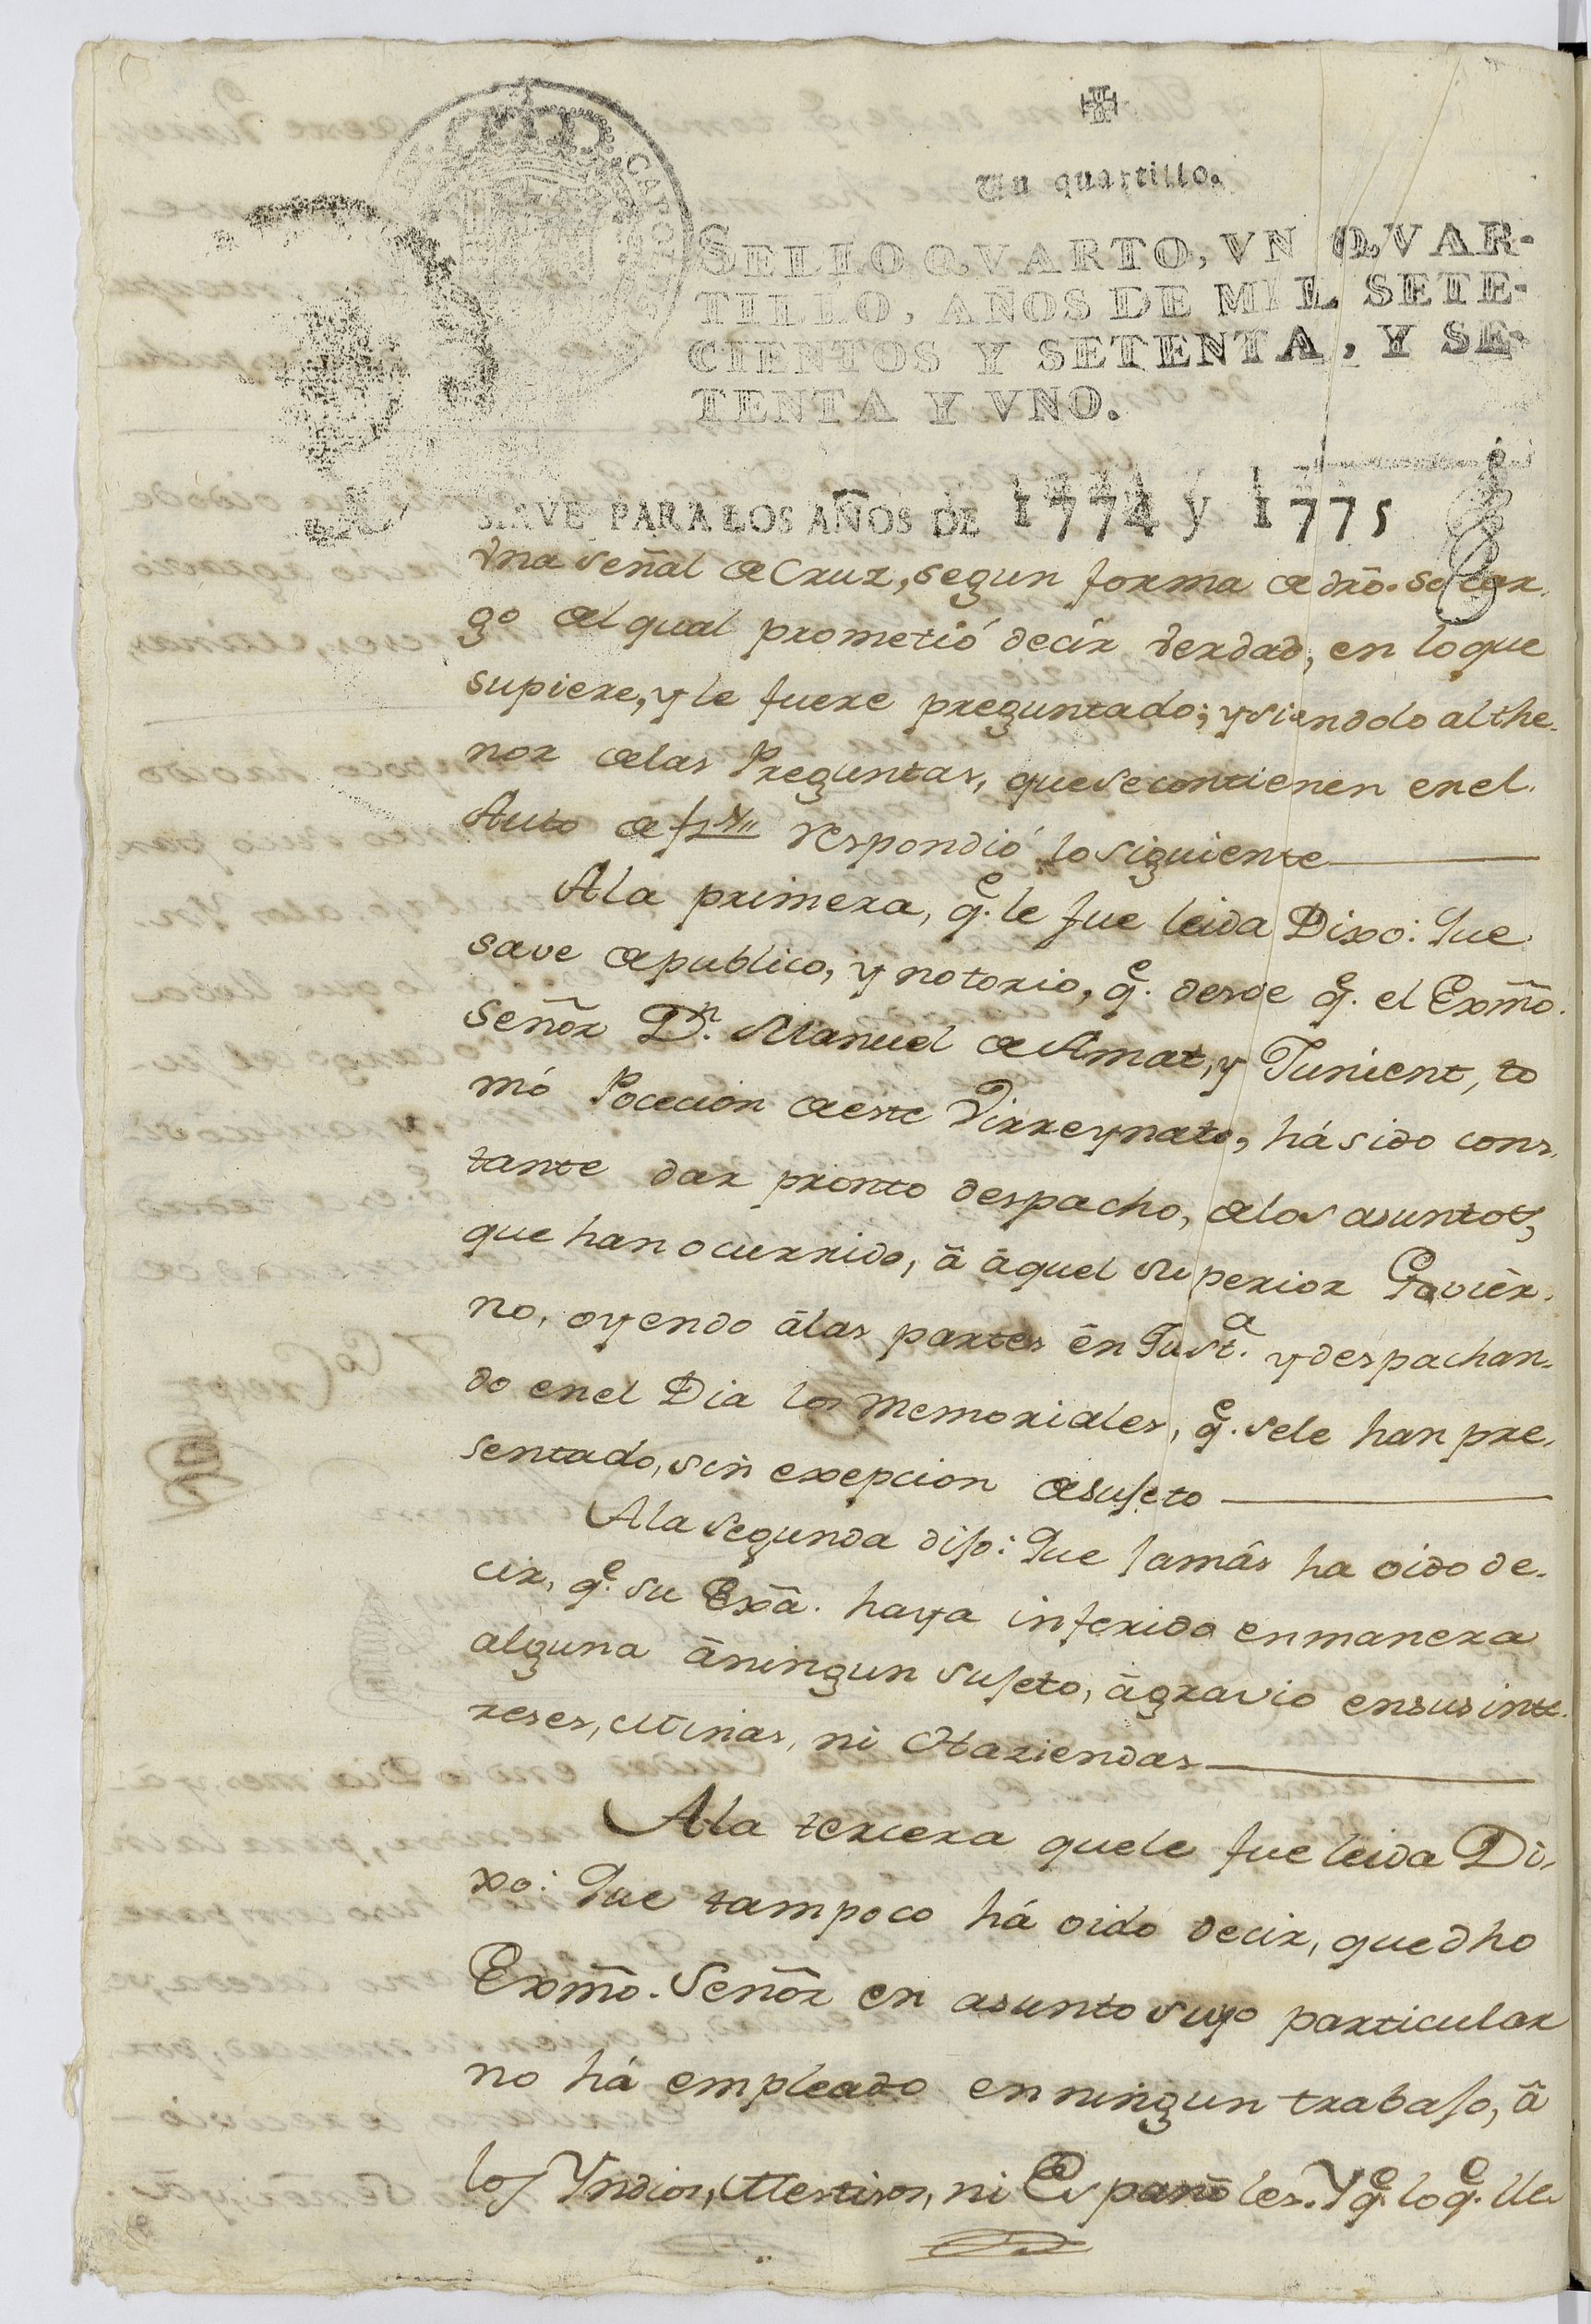 Un quartillo.
SELLO QVARTO, VN QVAR-
TILLO, AÑOS DE MIL SETE-
CIENTOS Y SETENTA, Y SE-
TENTA Y VNO.
SIRVE PARA LOS AÑOS DE 1774 y 1775
Vna señal de Cruz, segun forma de dro. so car-
go del qual prometió decir verdad, en lo que
supiere, y le fuere preguntado; y siendolo al the-
nor de las Preguntas, que se contienen en el
Auto de respondió lo siguiente
A la primera, q.e le fue leida Dixo: Que
save de publico, y notorio, q.e desde q.e el Exmõ.
Señor D.n Manuel de Amat, y Junient, to
mó Pocecion de este Virreynato, há sido cons-
tante dar pronto despacho, de los asuntos,
que han ocurrido, â âquel superior Govier-
no, oyendo âlas partes ên Just.a y despachan-
do en el Dia los Memoriales, q.e se le han pre-
sentado, sin exepcion de sujeto
A la segunda dijo: Que jamâs ha oido de-
cir, q.e su Exâ. haya inferido en manera
alguna âningun sujeto, âgravio en sus inte-
reses, Minas, ni Haziendas
A la tercera que le fue leida Di-
xo: Que tampoco há oido decir, que dho
Exmõ. Señor en asunto suyo particular
no há empleado en ningun trabajo, â
los Yndios, Mestisos, ni Españoles. Y q.e lo q.e lle-